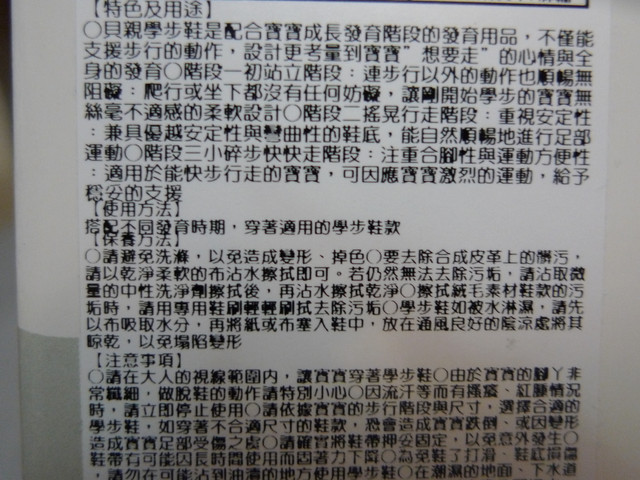 【特色及用途】
○貝親學步鞋是配合寶寶成長發育階段的發育用品，不僅能
支援步行的動作，設計更考量到寶寶"想要走"的心情與全
身的發育○階段一初站立階段：連步行以外的動作也順暢無
阻礙：爬行或坐下都沒有任何妨礙，讓剛開始學步的寶寶無
絲毫不適感的柔軟設計○階段二搖晃行走階段：重視安定性
：兼具優越安定性與彎曲性的鞋底，能自然順暢地進行足部
運動○階段三小碎步快快走階段：注重合腳性與運動方便性
：適用於能快步行走的寶寶，可因應寶寶激烈的運動，給予
穩妥的支援
【使用方法】
搭配不同發育時期，穿著適用的學步鞋款
【保養方法】
○請避免洗滌，以免造成變形、掉色○要去除合成皮革上的髒污，
請以乾淨柔軟的布沾水擦拭即可。若仍然無法去除污垢，請沾取微
量的中性洗淨劑擦拭後，再沾水擦拭乾淨○擦拭絨毛素材鞋款的污
垢時，請用專用鞋刷輕輕刷拭去除污垢○學步鞋如被水淋濕，請先
以布吸取水分，再將紙或布塞入鞋中，放在通風良好的陰涼處將其
晾乾，以免塌陷變形
【注意事項】
○請在大人的視線範圍內，讓寶寶穿著學步鞋○由於寶寶的腳丫非
常纖細，做脫鞋的動作請特別小心○因流汗等而有搔癢、紅腫情況
時，請立即停止使用○請依據寶寶的步行階段與尺寸，選擇合適的
學步鞋，如穿著不合適尺寸的鞋款，恐會造成寶寶跌倒、或因變形
造成寶寶足部受傷之虞○請確實將鞋帶押妥固定，以免意外發生○
鞋帶有可能因長時間使用而固著力下降○為免鞋了打滑、鞋底損傷
，請勿在可能沾到油漬的地方使用學步鞋○在潮濕的地面、下水道